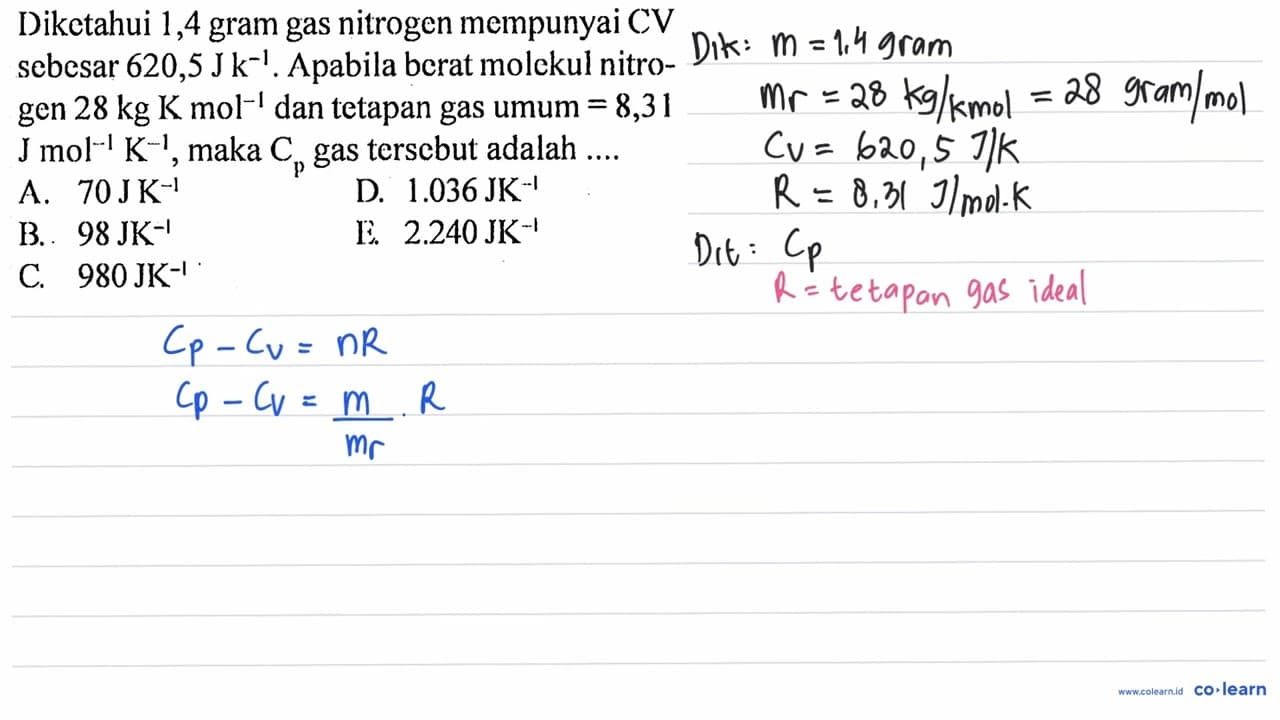 Diketahui 1,4 gram gas nitrogen mempunyai CV
sebesar 620,5 J k⁻¹. Apabila berat molekul nitro-
gen 28 kg K mol⁻¹ dan tetapan gas umum = 8,31
J mol⁻¹ K⁻¹, maka Cₚ gas tersebut adalah ....
A. 70 J K⁻¹ D. 1.036 JK⁻¹
B. 98 JK⁻¹ E. 2.240 JK⁻¹
C. 980 JK⁻¹
Dik: m = 1,4 gram
Mr = 28 kg/kmol = 28 gram/mol
Cv = 620,5 J/K
R = 8,31 J/mol.K
Dit: Cp
R = tetapan gas ideal
Cp - Cv = nR
Cp - Cv = m/mr . R
www.colearn.id co·learn